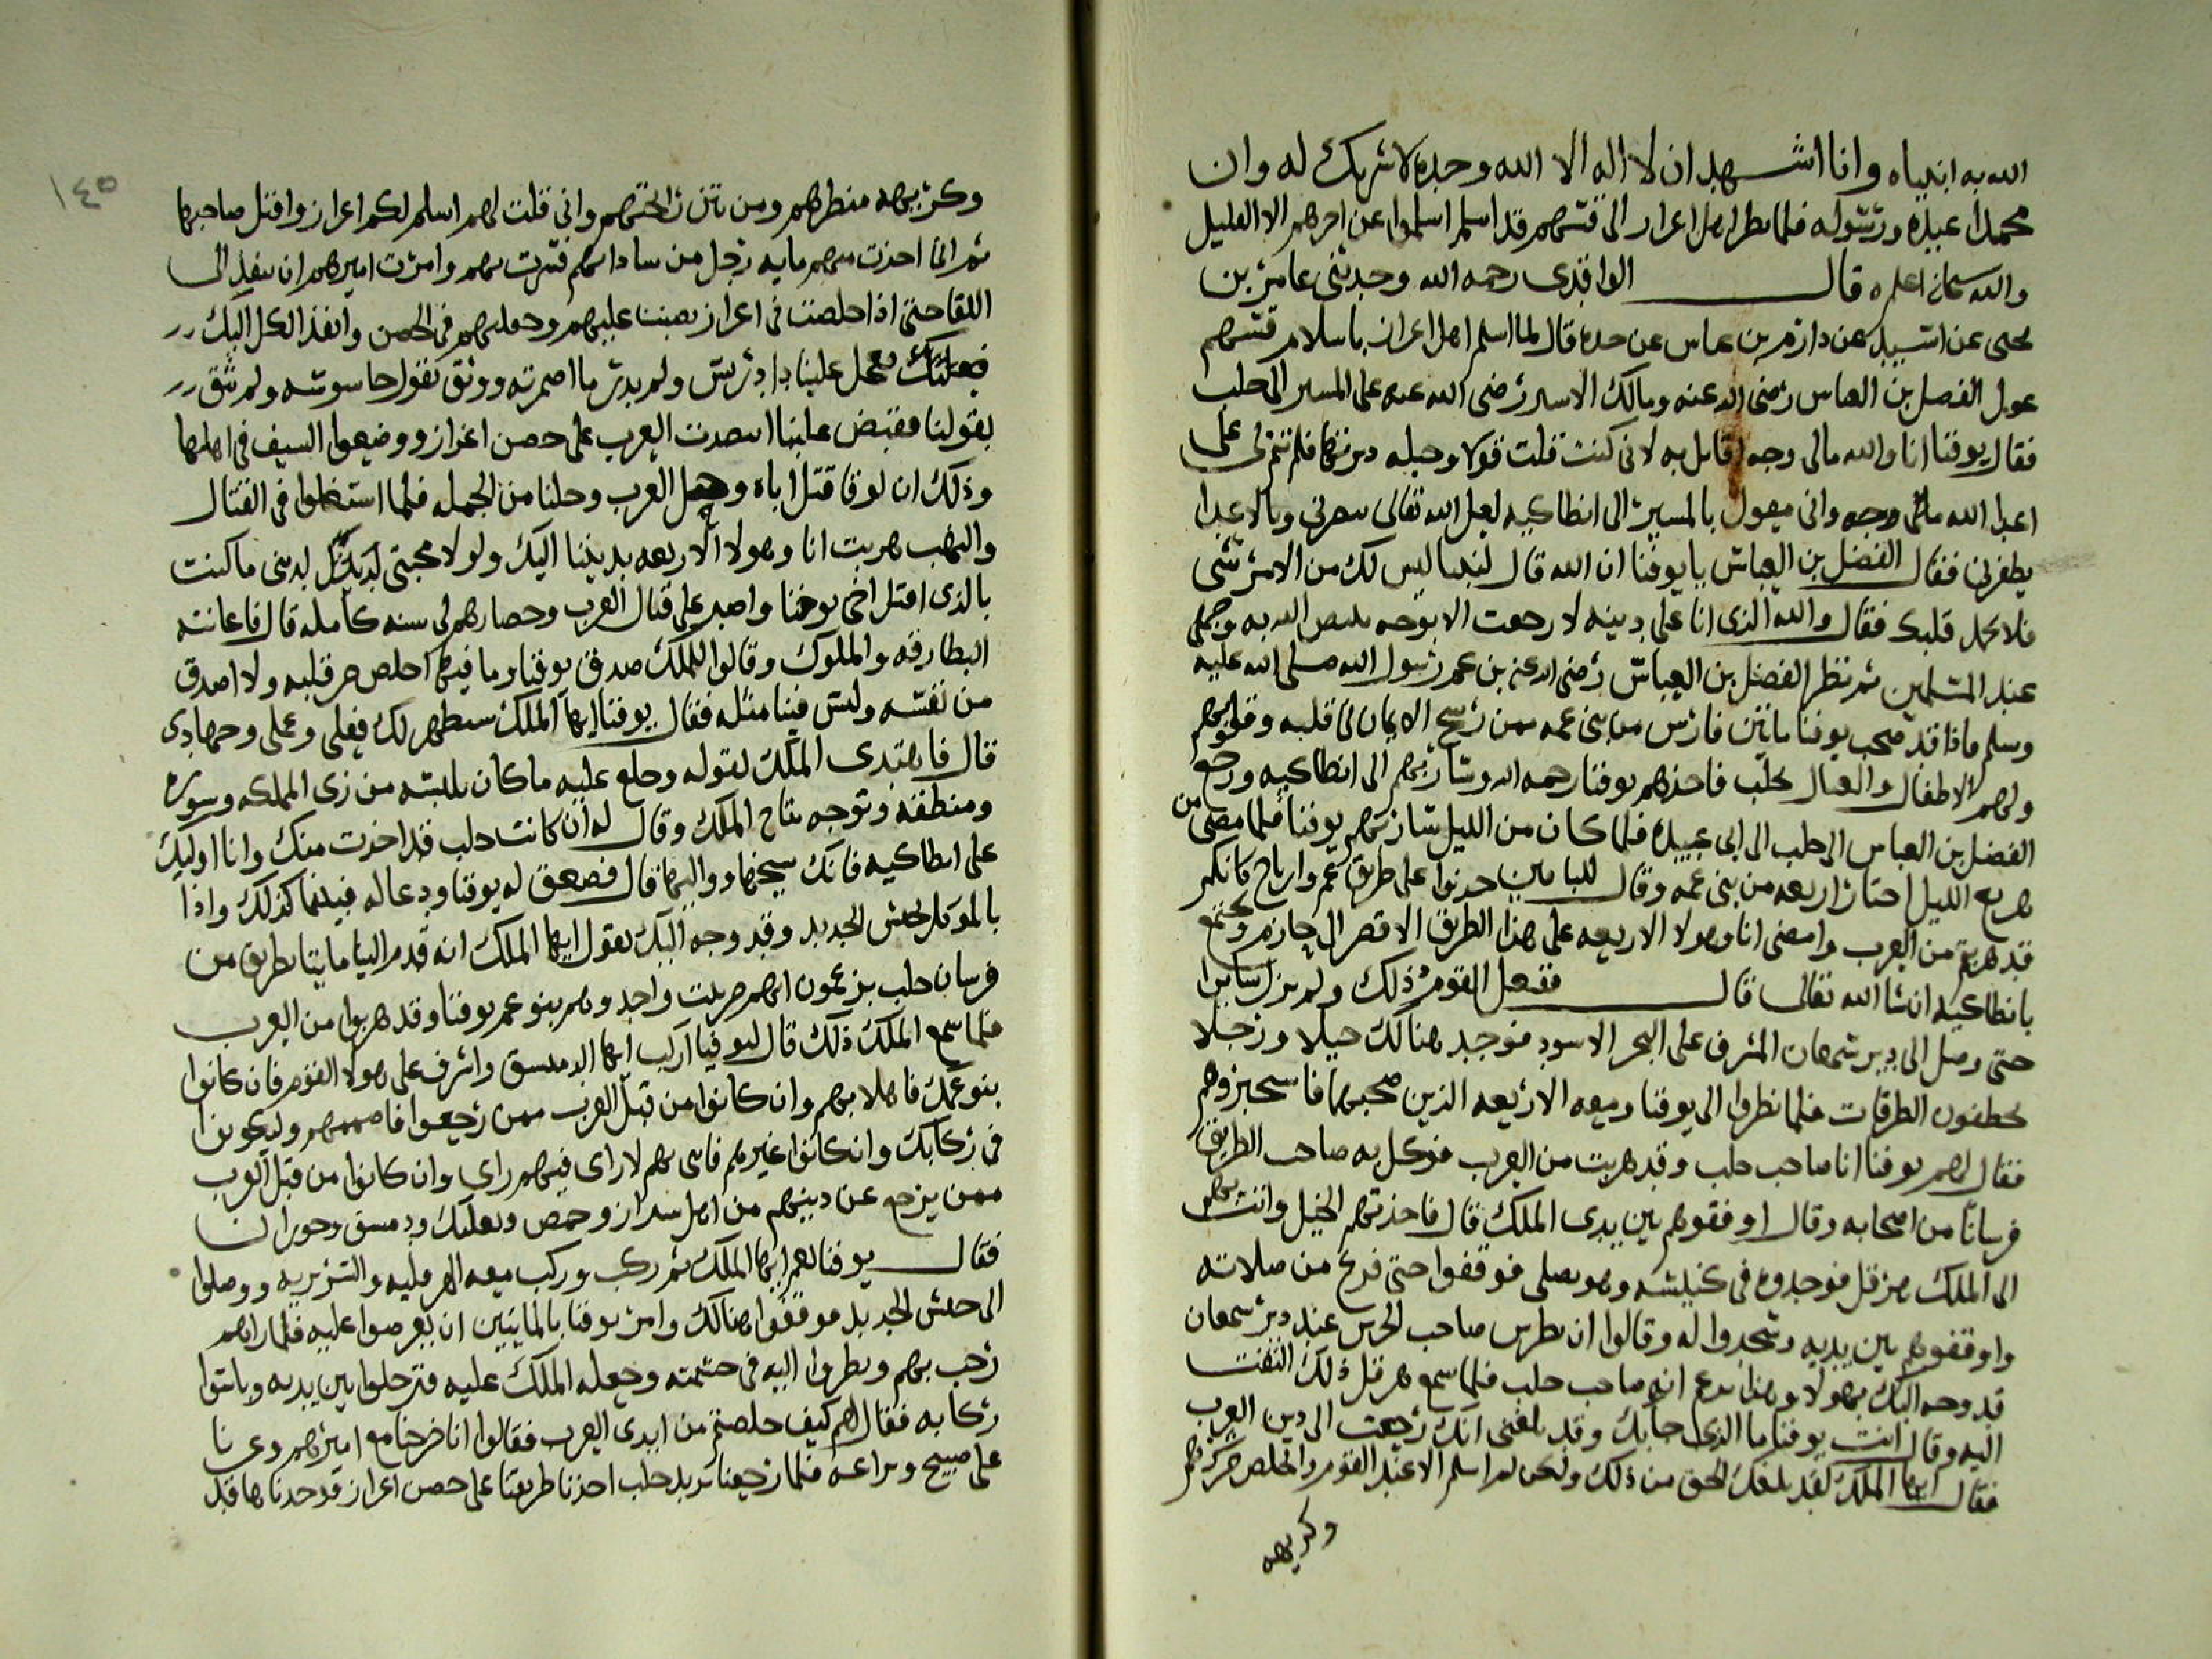 الله به انبياه وانا اشهد ان لا اله الا الله وحده لا شريك له وان
محمدا عبده ورسوله فلما نظر اهل اعزاز الى قسهم قد اسلم اسلموا عن اخرهم الا القليل
والله سبحانه اعلم قال الواقدى رحمه الله وحدثنى عامر بن
يحيى عن اسيد عن دارم بن عباس عن جده قال لما اسلم اهل اعزاز باسلام قسهم
عول الفضل بن العباس رضى الله عنه ومالك الاشتر رضى الله عنه على المسير الى حلب
فقال يوقنا انا والله مالى وجه اقابل به لانى كنت قلت قولا وحيله دبرتها فلم تتم لى على
اعدا الله مالى وجه وانى معول بالمسير الى انطاكيه لعل الله تعالى ينصرنى وبالاعدا
يظفرنى فقال الفضل بن العباس يا يوقنا ان الله قال لنبينا ليس لك من الامر شى
فلا تحمل قلبك فقال والله الذى انا على دينه لا رجعت الا بوجه يبيض الله به وجهى
عند المسلمين ثم نظر الفضل بن العباس رضى الله عنه بن عم رسول الله صلى الله عليه
وسلم فاذا قد صحب يوقنا مائتين فارس من بنى عمه ممن رسخ الايمان فى قلبه وقلوبهم
ولهم الاطفال والعيال بحلب فاخذهم يوقنا رحمه الله وسار بهم الى انطاكيه ورجع
الفضل بن العباس الى حلب الى ابى عبيده فلما كان من الليل سار بهم يوقنا فلما مضى من
هزيع الليل اختار اربعه من بنى عمه وقال للباقين خذوا على طريق عم وارتاح كانكم
قد هربتم من العرب وامضى انا وهولا الاربعه على هذا الطريق الاقصر الى حازم ونجتمع
بانطاكيه ان شا الله تعالى قال ففعل القوم ذلك ولم يزل سايرا
حتى وصل الى دير سمعان المشرف على البحر الاسود فوجد هنالك خيلا ورجلا
يحفظون الطرقات فلما نظروا الى يوقنا ومعه الاربعه الذين صحبهم فاستخبروهم
فقال لهم يوقنا انا صاحب حلب وقد هربت من العرب فوكل به صاحب الطريق
فرسانا من اصحابه وقال اوقفوهم بين يدى الملك قال فاخذتهم الخيل واتت بهم
الى الملك هرقل فوجدوه فى كنيسته وهو يصلى فوقفوا حتى فرغ من صلاته
واوقفوهم بين يديه وسجدوا له وقالوا ان بطرس صاحب الحرس عند دير سمعان
قد وجه اليك بهولا وهذا يدعى انه صاحب حلب فلما سمع هرقل ذلك التفت
اليه وقال انت يوقنا ما الذى جا بك وقد بلغنى انك رجعت الى دين العرب
فقال ايها الملك لقد بلغك الحق من ذلك ولكن لم اسلم الا عند القوم واتخلص من كيدهم
وكريهه
١٤٥
وكريهه منظرهم ومن نتن رايحتهم وانى قلت لهم اسلم لكم اعزاز واقتل صاحبها
ثم انى اخذت منهم مايه رجل من ساداتهم فسرت بهم وامرت اميرهم ان ينفذ الى
اللقا حتى اذا حصلت فى اعزاز قبضنا عليهم وحملتهم فى الحصن وانفذ الكل اليك
فعجل علينا دادرس ولم يدر ما اضمرته ووثق بقول جاسوسه ولم يثق
بقولنا فقبض علينا اسعدت العرب على حصن اعزاز ووضعوا السيف فى اهلها
وذلك ان لوقا قتل اباه وحمل العرب وحلنا من الجمله فلما اشتغلوا فى القتال
والنهب هربت انا وهولا الاربعه بديننا اليك ولولا محبتى لدينى ما كنت
بالذى اقتل اخى يوحنا واصبر على قتال العرب وحصارهم لى سنه كامله قال فاعانته
البطارقه والملوك وقالوا للملك صدق يوقنا وما فينا اخلص من قلبه ولا اصدق
من نفسه وليس فينا مثله فقال يوقنا ايها الملك سيظهر لك فعلى وعملى وجهادى
قال فاهتدى الملك لقوله وخلع عليه ما كان يلبسه من زى المملكه وسوره
ومنطقه وتوجه بتاج الملك وقال له ان كانت حلب قد اخذت منك وانا اوليك
على انطاكيه فانك سيخها وواليها قال فصعق له يوقنا ودعا له فبينما كذلك واذا
بالموكل بجسر الحديد وقد وجه اليك يقول ايها الملك انه قدم الينا مايتا بطريق من
فرسان حلب يزعمون انهم من بيت واحد وهم بنو عم يوقنا وقد هربوا من العرب
فلما سمع الملك ذلك قال ليوقنا اركب ايها الدمستق واشرف على هولا القوم فان كانوا
بنو عمك فاهلا بهم وان كانوا من قبل العرب ممن رجعوا فاضممهم وليكونوا
فى ركابك وان كانوا غيرهم فاتى بهم لارى فيهم راى وان كانوا من قبل العرب
ممن يرجع عن دينهم من اهل شيزر وحمص وبعلبك ودمشق وحوران
فقال يوقنا نعم ايها الملك ثم ركب وركب معه الهرقليه والسريريه ووصلوا
الى جسر الحديد فوقفوا هنالك وامر يوقنا بالمايتين ان يعرضوا عليه فلما راهم
رحب بهم ونظروا اليه فى حشمته وجعله الملك عليه فترجلوا بين يديه وباسوا
ركابه فقال لهم كيف خلصتم من ايدى العرب فقالوا انا خرجنا مع اميرهم
على صبيح فلما رجعنا نريد حلب اخذنا طريقنا على حصن اعزاز فوجدناها قد